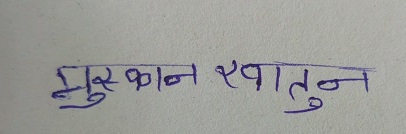 मुस्कान खातुन